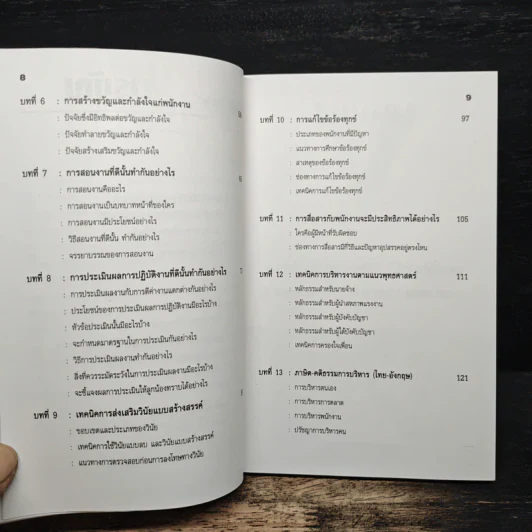 8
บทที่ 6 : การสร้างขวัญและกำลังใจแก่พนักงาน
: ปัจจัยซึ่งมีอิทธิพลต่อขวัญและกำลังใจ
: ปัจจัยทำลายขวัญและกำลังใจ
: ปัจจัยสร้างเสริมขวัญและกำลังใจ
บทที่ 7 : การสอนงานที่ดีนั้นทำกันอย่างไร
: การสอนงานคืออะไร
: การสอนงานเป็นบทบาทหน้าที่ของใคร
: การสอนงานมีประโยชน์อย่างไร
: วิธีสอนงานที่ดีนั้น ทำกันอย่างไร
: จรรยาบรรณของการสอนงาน
บทที่ 8 : การประเมินผลการปฏิบัติงานที่ดีนั้นทำกันอย่างไร
: การประเมินผลงานกับการตีค่างานแตกต่างกันอย่างไร
: ประโยชน์ของการประเมินผลการปฏิบัติงานมีอะไรบ้าง
: หัวข้อประเมินนั้นมีอะไรบ้าง
: จะกำหนดมาตรฐานในการประเมินกันอย่างไร
: วิธีการประเมินผลงานทำกันอย่างไร
: สิ่งที่ควรระมัดระวังในการประเมินผลงานมีอะไรบ้าง
: จะชี้แจงผลการประเมินให้ลูกน้องทราบได้อย่างไร
บทที่ 9 : เทคนิคการส่งเสริมวินัยแบบสร้างสรรค์
: ขอบเขตและประเภทของวินัย
: เทคนิคการใช้วินัยแบบลบ และวินัยแบบสร้างสรรค์
: แนวทางการตรวจสอบก่อนการลงโทษทางวินัย
9
บทที่ 10 : การแก้ไขข้อร้องทุกข์ 97
: ประเภทของพนักงานที่มีปัญหา
: แนวทางการศึกษาข้อร้องทุกข์
: สาเหตุของข้อร้องทุกข์
: ช่องทางการแก้ไขข้อร้องทุกข์
: เทคนิคการแก้ไขข้อร้องทุกข์
บทที่ 11 : การสื่อสารกับพนักงานจะมีประสิทธิภาพได้อย่างไร 105
: ใครคือผู้มีหน้าที่รับผิดชอบ
: ช่องทางการสื่อสารมีกี่วิธีและปัญหาอุปสรรคอยู่ตรงไหน
บทที่ 12 : เทคนิคการบริหารงานตามแนวพุทธศาสตร์ 111
: หลักธรรมสำหรับนายจ้าง
: หลักธรรมสำหรับผู้นำสหภาพแรงงาน
: หลักธรรมสำหรับผู้บังคับบัญชา
: หลักธรรมสำหรับผู้ใต้บังคับบัญชา
: เทคนิคการครองใจเพื่อน
บทที่ 13 : ภาษิต-คติธรรมการบริหาร (ไทย-อังกฤษ) 121
: การบริหารตนเอง
: การบริหารการตลาด
: การบริหารพนักงาน
: ปรัชญาการบริหารคน